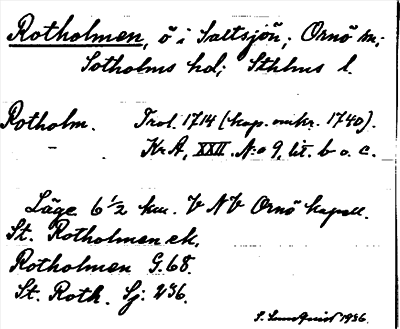 Rotholmen, ö i Saltsjön; Ornö sn;
Sotholms hd; Sthlms l.
Rotholm. Trol. 1714 (kop. omkr. 1740).
Kr A, XXII. N:o 9, lit. b o. c.
Läge 6 1/2 km. V N V Ornö kapell.
St. Rotholmen ek.
Rotholmen G. 68.
St. Roth. Sj: 236.
S. Lundquist 1936.